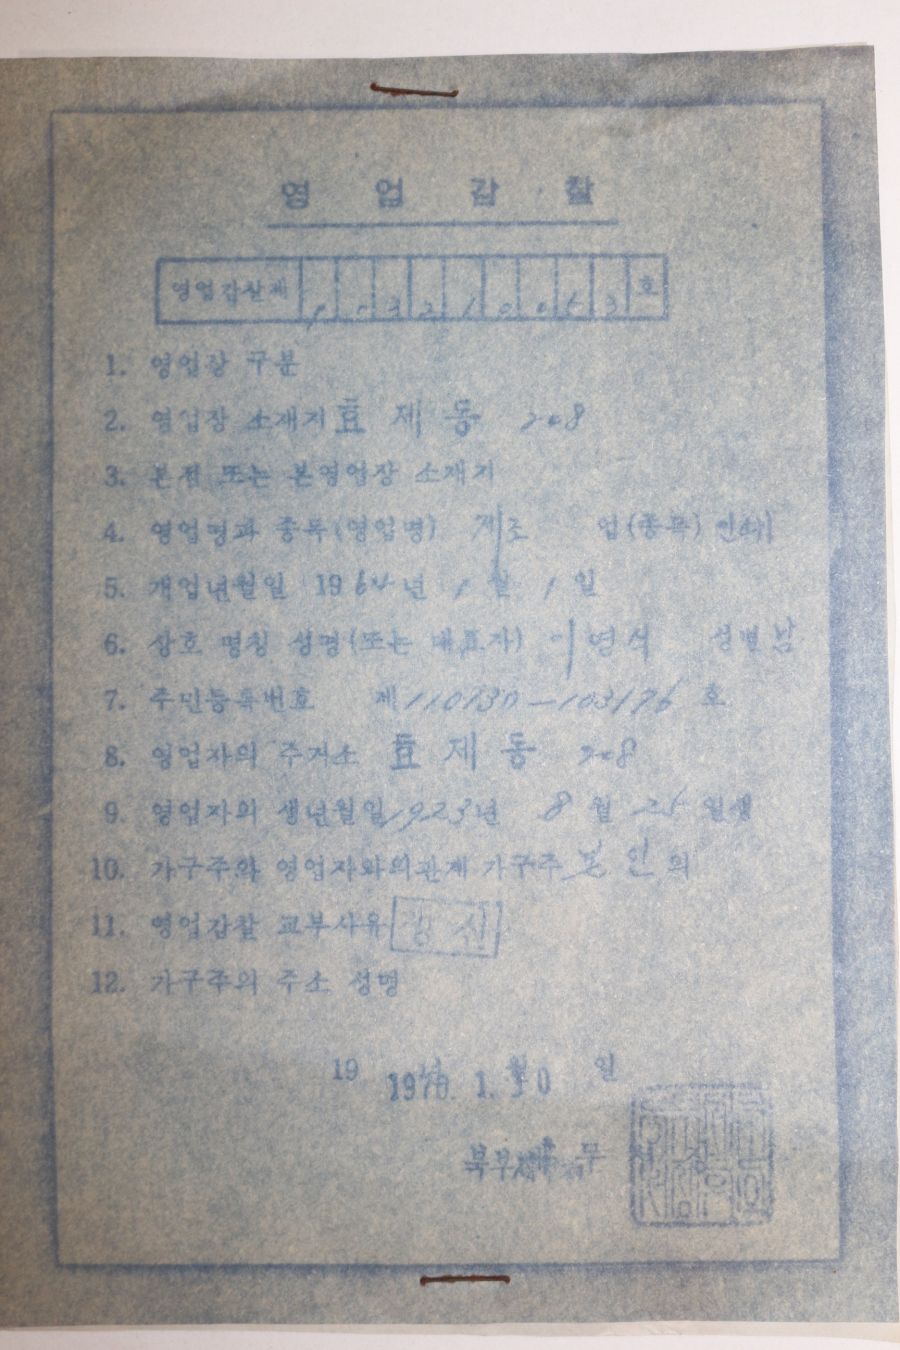 영 업 감 찰
영업감찰제 호
1. 영업장 구분
2. 영업장 소재지 효 제 동 208
3. 본점 또는 본영업장 소재지
4. 영업명과 종목(영업명) 제조 업(종목) 인쇄
5. 개업년월일 1964년 1월 1일
6. 상호 명칭 성명(또는 대표자) 이영석 성별 남
7. 주민등록번호 제110730-103176 호
8. 영업자의 주거소 효 제 동 208
9. 영업자의 생년월일 1923년 8월 25일생
10. 가구주와 영업자와의관계 가구주 본인의
11. 영업감찰 교부사유 갱신
12. 가구주의 주소 성명
19 년 월 일
1970. 1. 30
북부세무서장